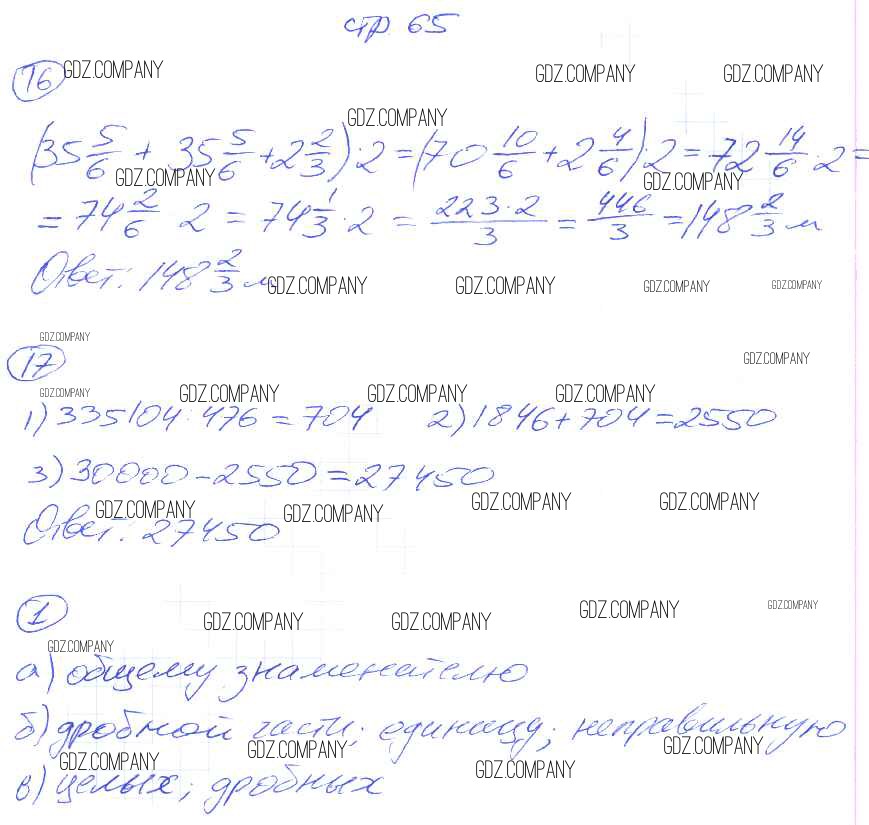 стр 65
16 GDZ.COMPANY GDZ.COMPANY GDZ.COMPANY
GDZ.COMPANY
(35 5/6 + 35 5/6 + 2 2/3) · 2 = (70 10/6 + 2 4/6) · 2 = 72 14/6 · 2 =
GDZ.COMPANY GDZ.COMPANY
= 74 2/6 2 = 74 1/3 · 2 = 223·2/3 = 446/3 = 148 2/3 м
Ответ: 148 2/3 м GDZ.COMPANY GDZ.COMPANY GDZ.COMPANY GDZ.COMPANY
GDZ.COMPANY
17 GDZ.COMPANY
GDZ.COMPANY GDZ.COMPANY GDZ.COMPANY GDZ.COMPANY
1) 335104 : 476 = 704 2) 1846 + 704 = 2550
3) 30000 - 2550 = 27450
GDZ.COMPANY GDZ.COMPANY GDZ.COMPANY GDZ.COMPANY
Ответ: 27450
1 GDZ.COMPANY GDZ.COMPANY GDZ.COMPANY GDZ.COMPANY
GDZ.COMPANY
а) общему знаменателю
б) дробной части; единицу; неправильную
GDZ.COMPANY GDZ.COMPANY GDZ.COMPANY GDZ.COMPANY
в) целых; дробных